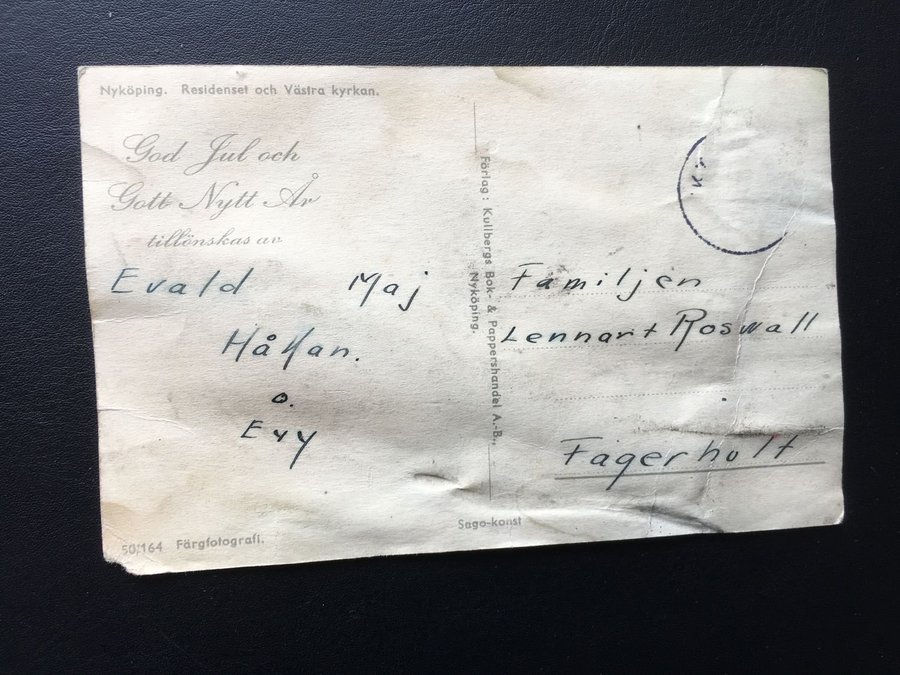 Nyköping. Residenset och Västra kyrkan.
God Jul och
Gott Nytt År
tillönskas av
Evald Maj
Håkan.
o.
Evy
50/164 Färgfotografi.
Förlag: Kullbergs Bok- & Pappershandel A.-B.,
Nyköping.
Sago-konst
Familjen
Lennart Roswall
Fagerhult